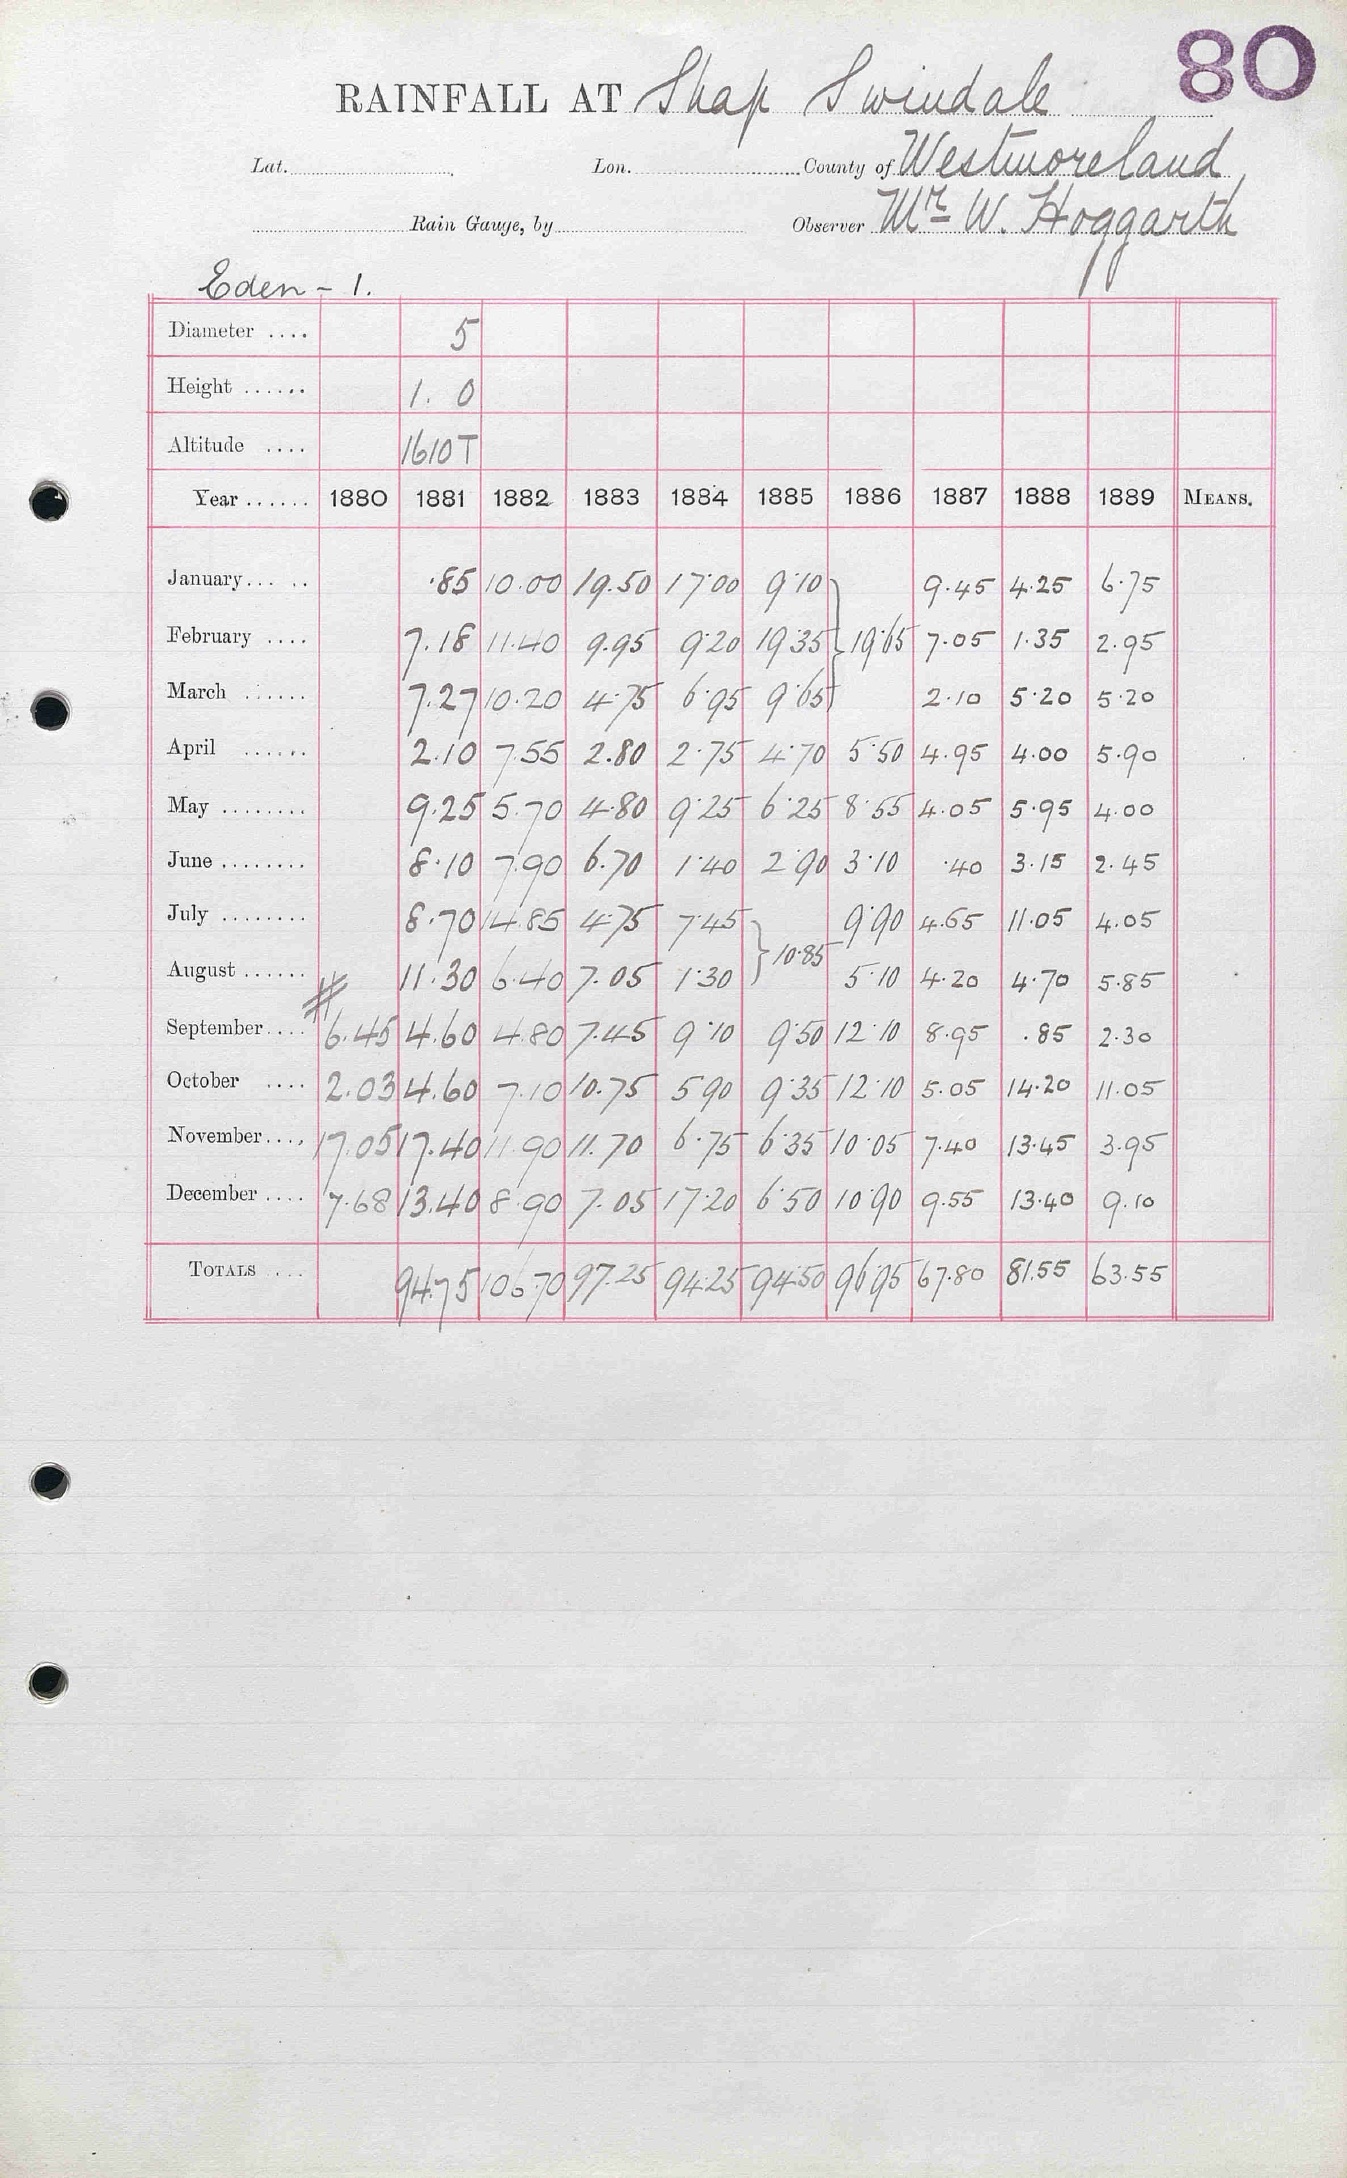 80
RAINFALL AT Shap Swindale
Lat. Lon. County of Westmoreland
Rain Gauge, by Observer Mr W. Hoggarth
Eden - 1.
Diameter .... 5
Height ...... 1. 0
Altitude .... 1610T
Year ...... 1880 1881 1882 1883 1884 1885 1886 1887 1888 1889 MEANS.
January ... .. .85 10.00 19.50 17.00 9.10 9.45 4.25 6.75
February .... 7.18 11.40 9.95 9.20 19.35 } 19.65 7.05 1.35 2.95
March ...... 7.27 10.20 4.75 6.95 9.65 2.10 5.20 5.20
April ...... 2.10 7.55 2.80 2.75 4.70 5.50 4.95 4.00 5.90
May ........ 9.25 5.70 4.80 9.25 6.25 8.55 4.05 5.95 4.00
June ........ 8.10 7.90 6.70 1.40 2.90 3.10 .40 3.15 2.45
July ........ 8.70 14.85 4.75 7.45 } 10.85 9.90 4.65 11.05 4.05
August ...... 11.30 6.40 7.05 1.30 5.10 4.20 4.70 5.85
September .... # 6.45 4.60 4.80 7.45 9.10 9.50 12.10 8.95 .85 2.30
October .... 2.03 4.60 7.10 10.75 5.90 9.35 12.10 5.05 14.20 11.05
November .... 17.05 17.40 11.90 11.70 6.75 6.35 10.05 7.40 13.45 3.95
December .... 7.68 13.40 8.90 7.05 17.20 6.50 10.90 9.55 13.40 9.10
TOTALS ... 94.75 106.70 97.25 94.25 94.50 96.95 67.80 81.55 63.55